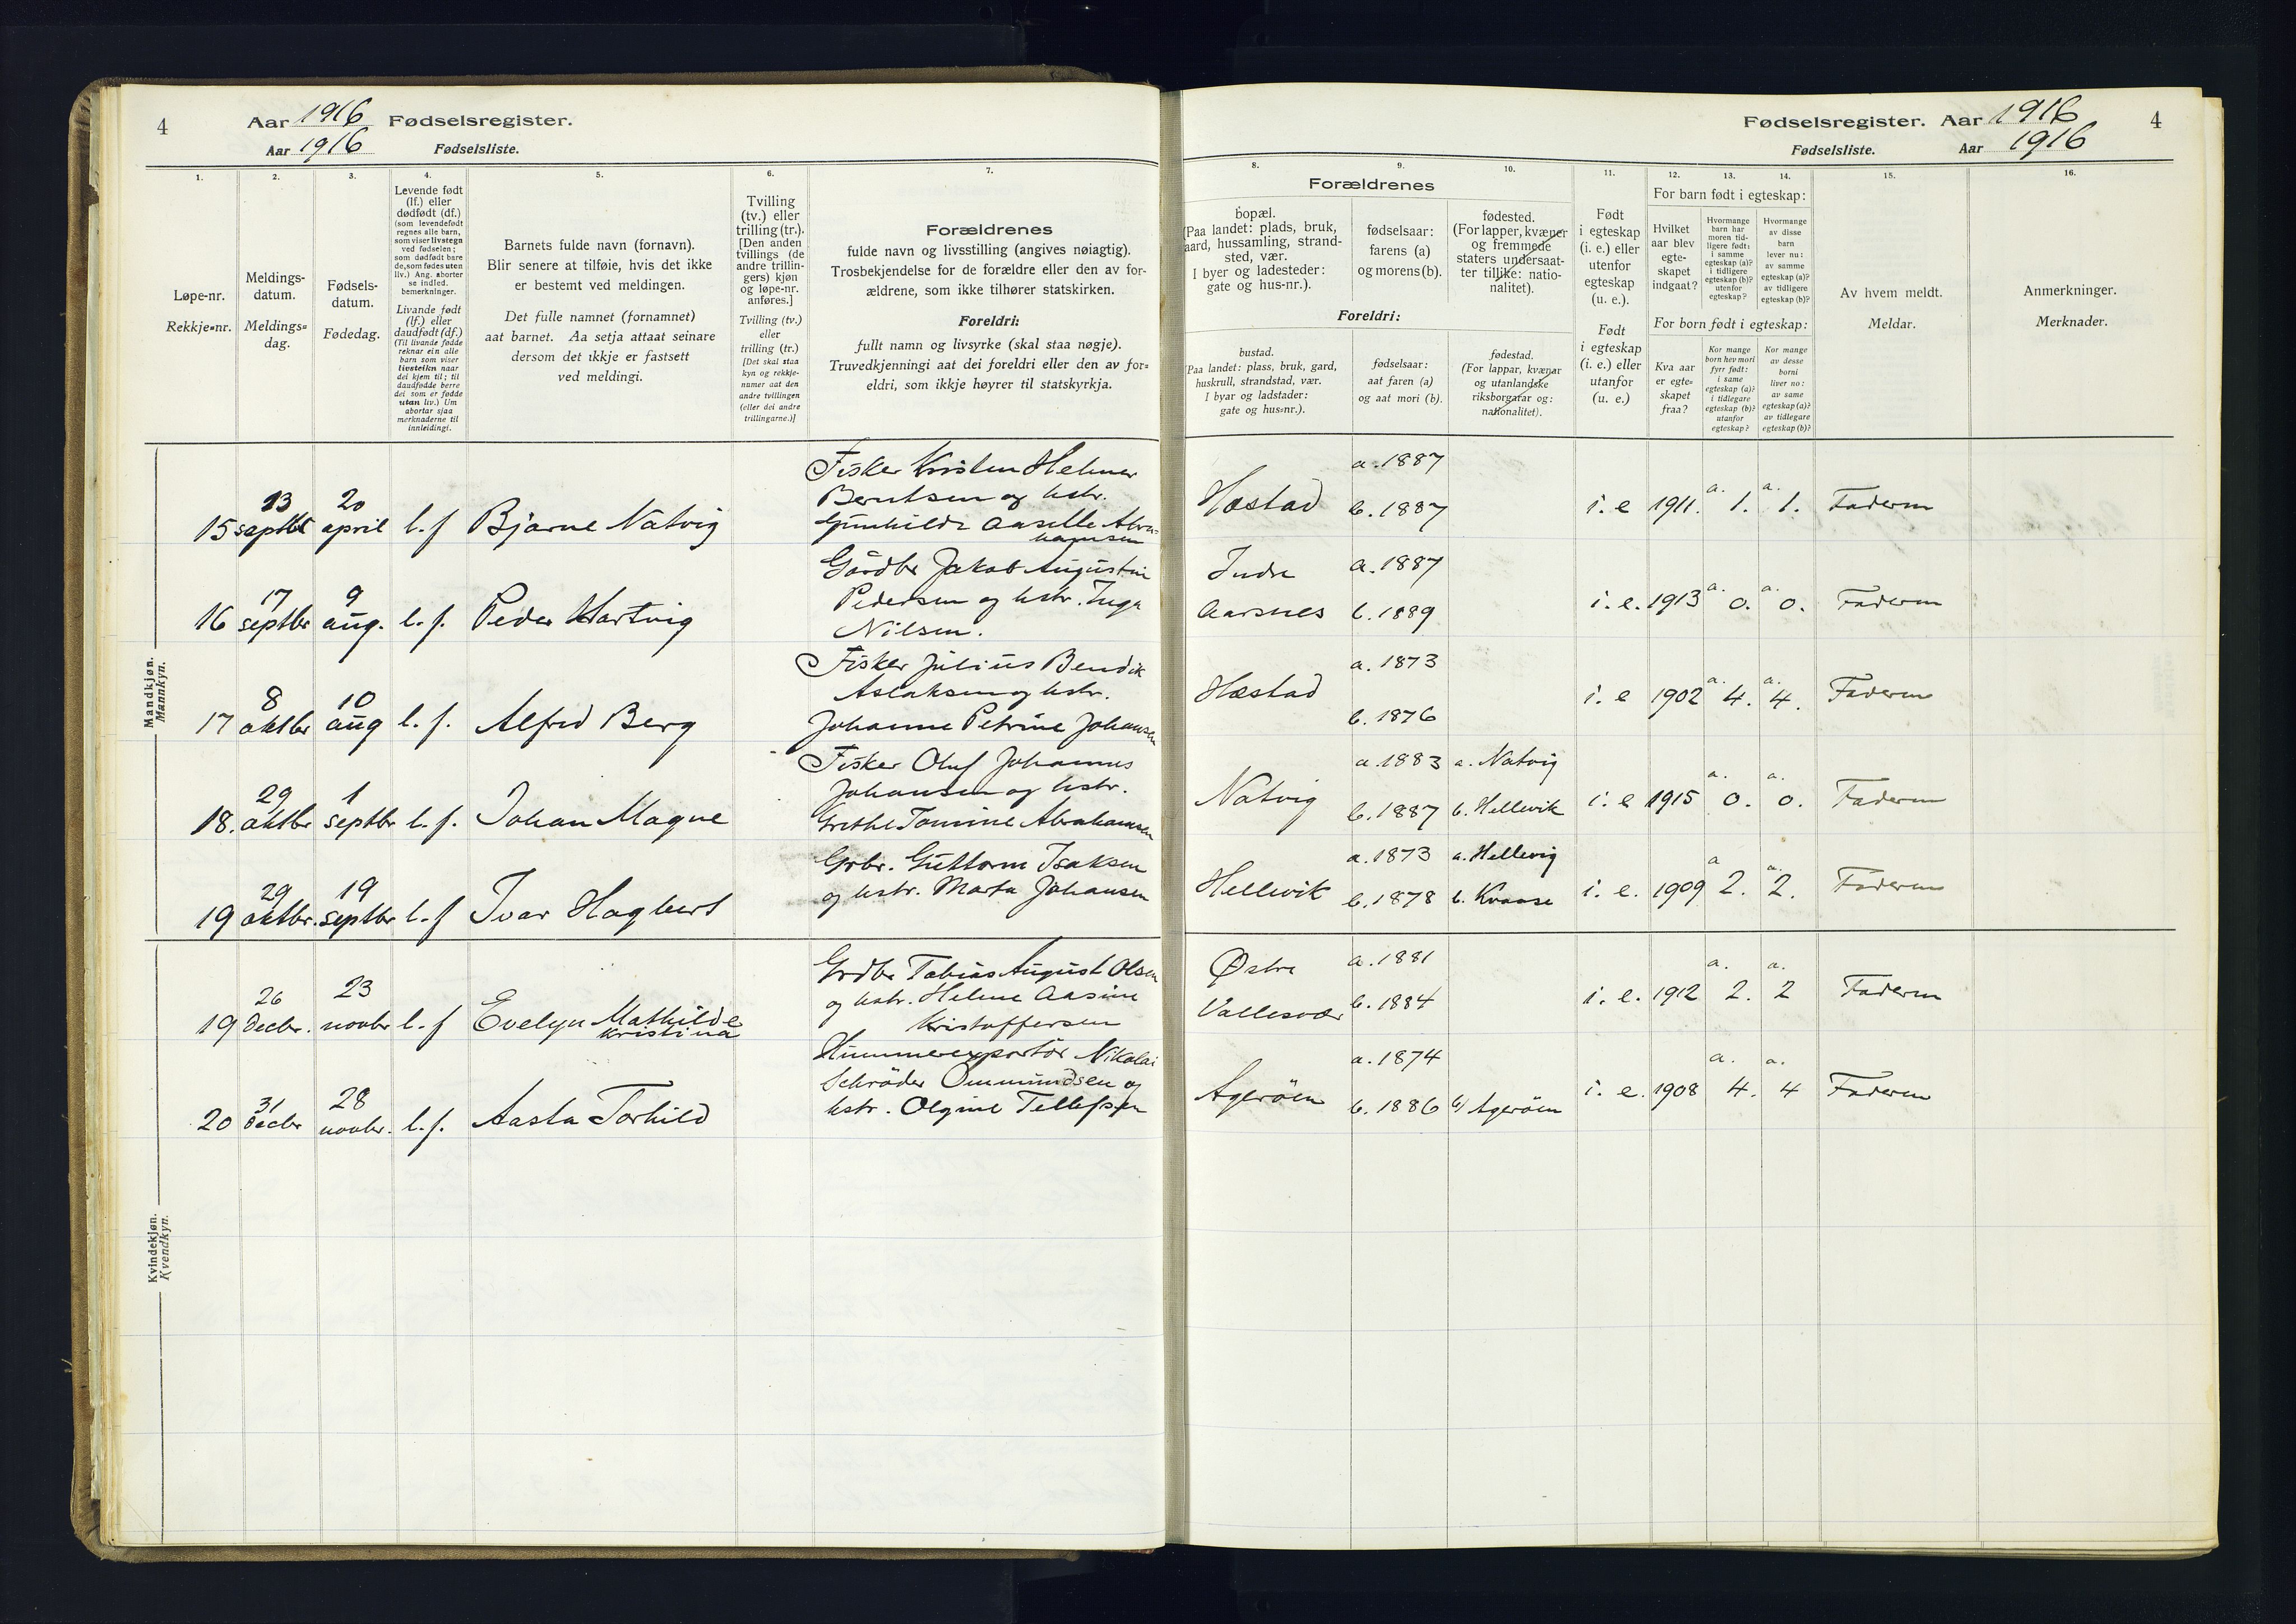 4 Aar 1916 Fødselsregister.
Aar 1916 Fødselsliste.
1. 2. 3. 4. 5. 6. 7.
Løpe-nr.
Rekkje-nr.
Meldings-
datum.
Meldings-
dag.
Fødsels-
datum.
Fødedag.
Levende født
(lf.) eller
dødfødt (df.)
(som levendefødt
regnes alle barn,
som viser livstegn
ved fødselen;
som dødfødt bare
de, som fødes uten
liv.) Ang. aborter
se indled.
bemerkninger.
Livande født
(lf.) eller
daudfødt (df.)
(Til livande fødde
reknar ein alle
barn som viser
livsteikn naar
dei kjem til; til
daudfødde berre
dei som er fødde
utan liv.) Um
abortar sjaa
merknaderne til
innleidingi.
Barnets fulde navn (fornavn).
Blir senere at tilføie, hvis det ikke
er bestemt ved meldingen.
Det fulle namnet (fornamnet)
aat barnet. Aa setja attaat seinare
dersom det ikkje er fastsett
ved meldingi.
Tvilling
(tv.) eller
trilling (tr.).
[Den anden
tvillings (de
andre trillin-
gers) kjøn
og løpe-nr.
anføres.]
Tvilling (tv.)
eller
trilling (tr.)
[Det skal staa
kyn og rekkje-
numer aat den
andre tvillingen
(eller dei andre
trillingarne.)]
Forældrenes
fulde navn og livsstilling (angives nøiagtig).
Trosbekjendelse for de forældre eller den av for-
ældrene, som ikke tilhører statskirken.
Foreldri:
fullt namn og livsyrke (skal staa nøgje).
Truvedkjenningi aat dei foreldri eller den av for-
eldri, som ikkje høyrer til statskyrkja.
Mandkjøn.
Mannkyn.
15 13 septbr 20 april l. f Bjarne Natvig
Fisker Kristen Helmer
Berntsen og hstr.
Gunhilde Aaselle Abra-
hamsen
16 17 septbr 9 aug. l. f. Peder Hartvig
Gårdbr Jakob Augustin
Pedersen og hstr. Inga
Nilsen.
17 8 oktbr 10 aug l. f. Alfred Berg
Fisker Julius Bendik
Aslaksen og hstr.
Johanne Petrine Johansen
18. 29 oktbr 1 septbr l. f. Johan Magne
Fisker Oluf Johannes
Johansen og hstr.
Grethe Tomine Abrahamsen
19 29 oktbr. 19 septbr l. f Ivar Hagbert
Grbr. Guttorm Isaksen
og hstr. Marta Johansen
Kvindekjøn.
Kvendkyn.
19 26 decbr. 23 novbr l. f Evelyn Mathilde
Kristina
Grdbr Tobias August Olsen
og hstr. Helene Aasine
Kristoffersen
20 31 decbr 28 novbr. l. f. Aasta Torhild
Hummerexportør Nikolai
Schrøder Ommundsen og
hstr. Olgine Tellefsen
Fødselsregister. Aar 1916 4
Fødselsliste. Aar 1916
8. 9. 10. 11. 12. 13. 14. 15. 16.
Forældrenes
bopæl.
(Paa landet: plads, bruk,
gaard, hussamling, strand-
sted, vær.
I byer og ladesteder:
gate og hus-nr.).
fødselsaar:
farens (a)
og morens (b).
fødested.
(For lapper, kvæner
og fremmede
staters undersaat-
ter tillike: natio-
nalitet).
Foreldri:
bustad.
(Paa landet: plass, bruk, gard,
huskrull, strandstad, vær.
I byar og ladstader:
gate og hus-nr.).
fødselsaar:
aat faren (a)
og aat mori (b).
fødestad.
(For lappar, kvænar
og utanlandske
riksborgarar og:
nationalitet).
Født
i egteskap
(i. e.) eller
utenfor
egteskap
(u. e.).
Født
i egteskap
(i. e.) eller
utanfor
(u. e.)
For barn født i egteskap:
Hvilket
aar blev
egte-
skapet
indgaat?
Hvormange
barn har
moren tid-
ligere født:
i samme
egteskap (a)?
i tidligere
egteskap (b)?
utenfor
egteskap?
Hvormange
av disse
barn
lever nu:
av samme
egteskap (a)?
av tidligere
egteskap (b)?
For born født i egteskap:
Kva aar
er egte-
skapet
fraa?
Kor mange
born hev mori
fyrr født:
i same
egteskap (a)?
i tidlegare
egteskap (b)?
utanfor
egteskap?
Kor mange
av desse
borni
liver no:
av same
egteskap (a)?
av tidlegare
egteskap (b)?
Av hvem meldt.
Meldar.
Anmerkninger.
Merknader.
Hæstad a. 1887 b. 1887 i. e 1911. a. 1. a. 1. Faderen
Indre Aarsnes a. 1887 b. 1889 i. e. 1913 a. 0. a. 0. Faderen
Hæstad a. 1873 b. 1876 i. e 1902 a. 4. a. 4. Faderen
Natvig a. 1883 b. 1887 a. Natvig b. Hellevik i. e 1915 a. 0. a. 0. Faderen
Hellevik a. 1873 b. 1878 a. Hellevig b. Kvaase i. e. 1909 a 2. a. 2. Faderen
Østre Vallesvær a. 1881 b. 1884 i. e. 1912 a. 2. a. 2 Faderen
Agerøen a. 1874 b. 1886 b) Agerøen i. e. 1908 a. 4. a. 4 Faderen